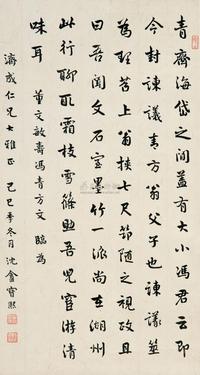 青齊海岱之間蓋有大小馮君云即
今封諫議青方翁父子也諫議筮
為野苦上翁挾七尺節随之視政且
曰吾聞文石室墨竹一派尚在湖州
此行聊取霜枝雪榦與吾兒官游清
味耳
董文敏壽馮青方文 臨為
濟成仁兄大雅正 己巳季冬月 沈盦寶熙